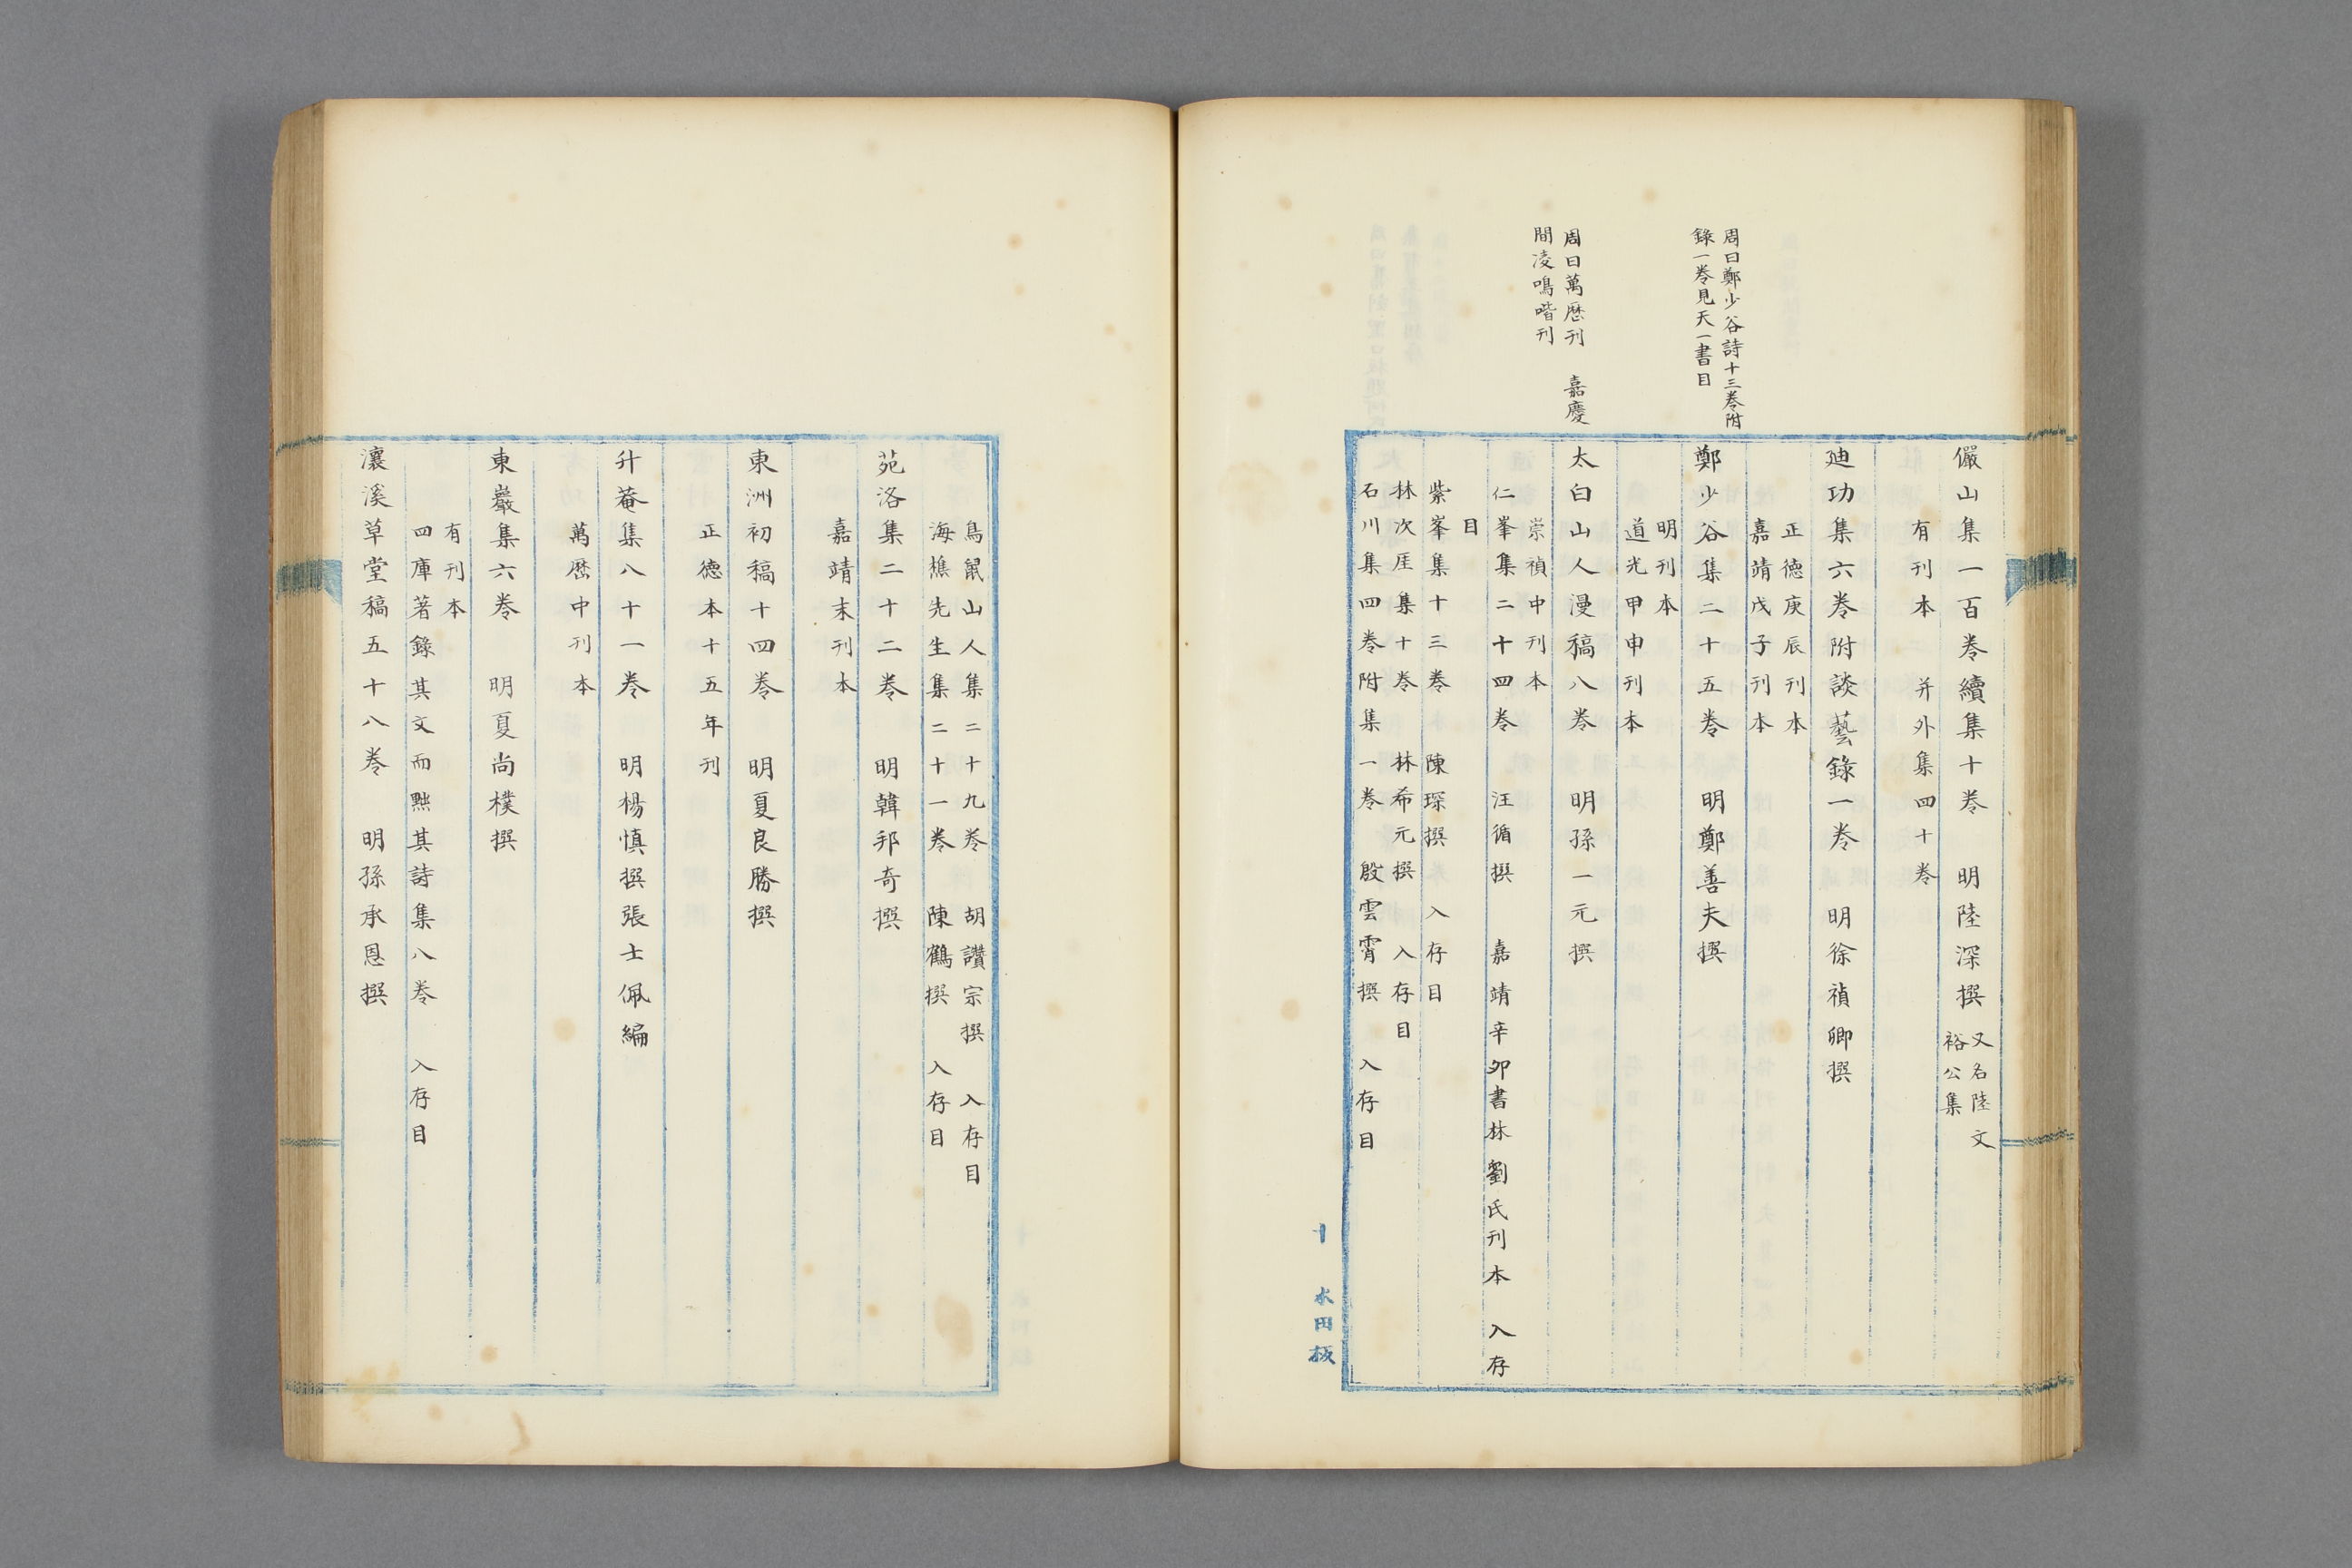 周曰鄭少谷詩十三卷附
錄一卷見天一書目
周曰萬厯刋　嘉慶
間凌鳴喈刋
儼山集一百卷續集十卷　明陸深撰
又名陸文
裕公集
有刋本　并外集四十卷
廸功集六卷附談藝錄一卷　明徐禎卿撰
正德庚辰刋本
嘉靖戊子刋本
鄭少谷集二十五卷　明鄭善夫撰
明刋本
道光甲申刋本
太白山人漫稿八卷　明孫一元撰
崇禎中刋本
仁峯集二十四卷　汪循撰　嘉靖辛卯書林劉氏刋本　入存
目
紫峯集十三卷　陳琛撰　入存目
林次厓集十卷　林希元撰　入存目
石川集四卷附集一卷　殷雲霄撰　入存目
十　水田板
鳥鼠山人集二十九卷　胡讚宗撰　入存目
海樵先生集二十一卷　陳鶴撰　入存目
苑洛集二十二卷　明韓邦奇撰
嘉靖末刋本
東洲初稿十四卷　明夏良勝撰
正德本十五年刋
升菴集八十一卷　明楊慎撰張士佩編
萬厯中刋本
東巖集六卷　明夏尚樸撰
有刋本
四庫著錄其文而黜其詩集八卷　入存目
瀼溪草堂稿五十八卷　明孫承恩撰